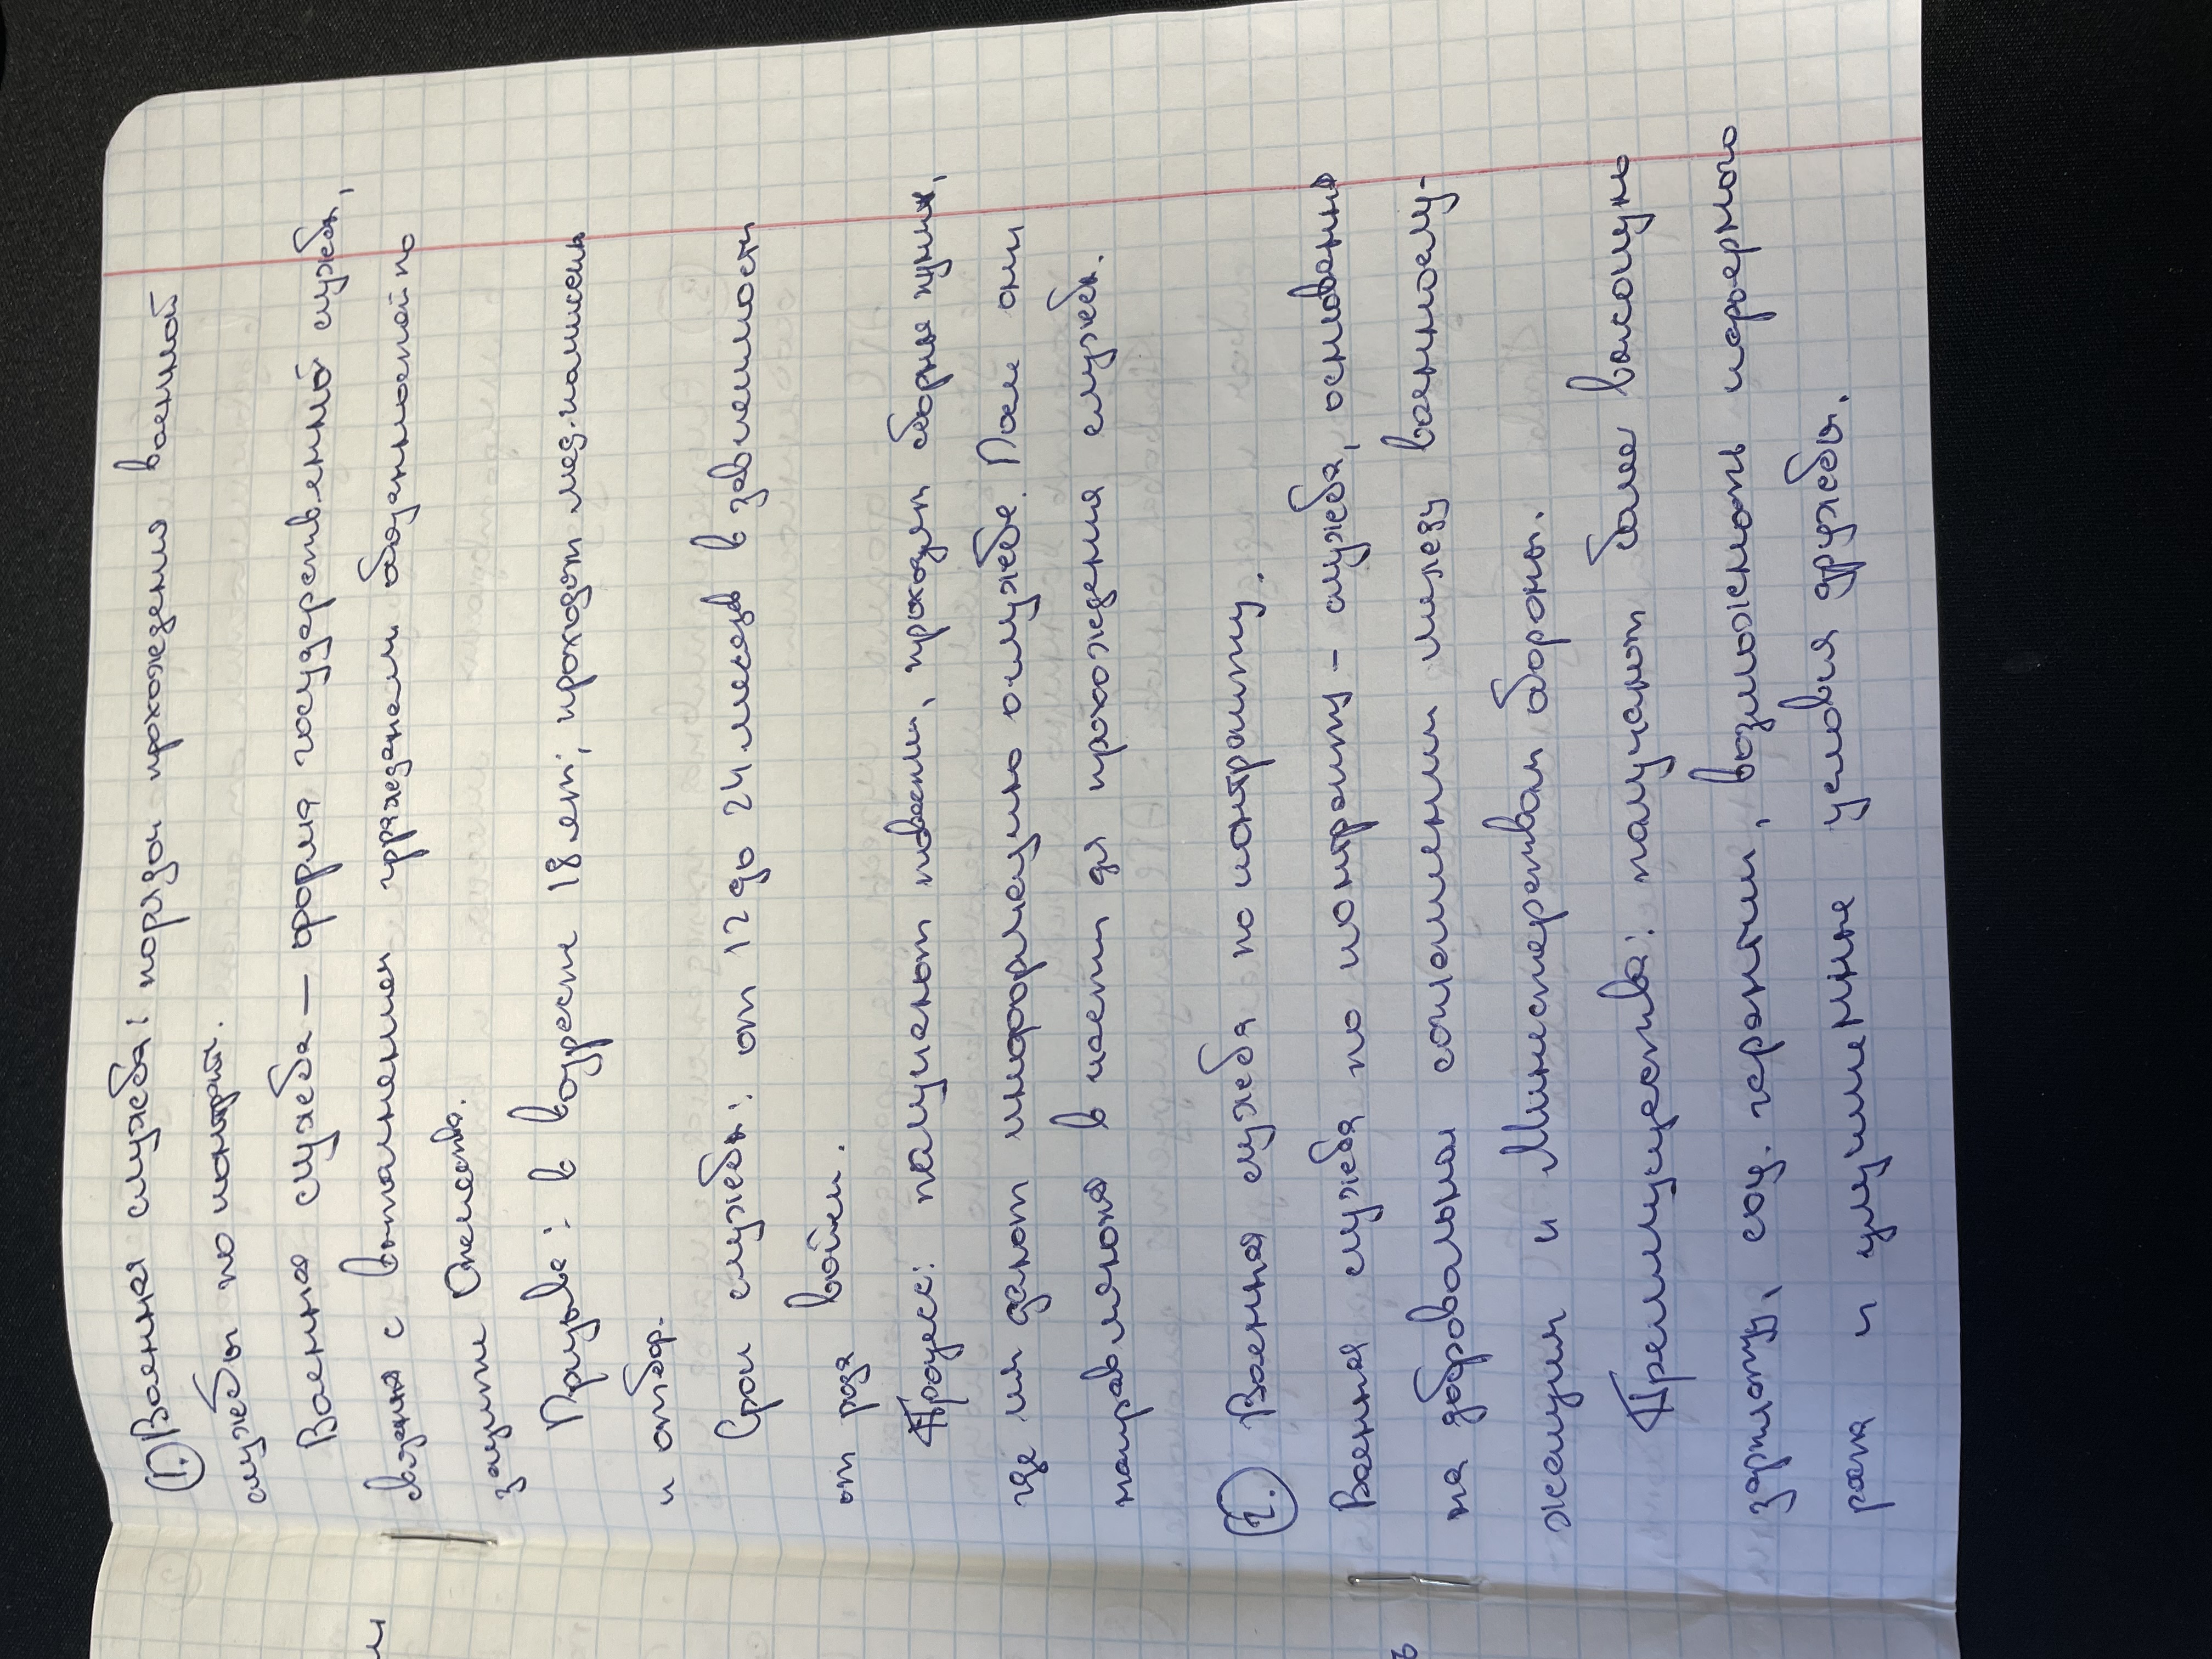 1. Военная служба: порядок прохождения военной
службы по контракту.
Военная служба — форма государственной службы,
связана с выполнением гражданами обязанностей по
защите Отечества.
Призыв: в возрасте 18 лет, проходят мед.комиссию
и отбор.
Срок службы: от 12 до 24 месяцев в зависимости
от рода войск.
Процесс: получают повестки, проходят сборные пункты,
где им дают информацию о службе. После они
направляются в части для прохождения службы.
2. Военная служба по контракту.
Военная служба по контракту – служба, основанная
на добровольном соглашении между военнослу-
жащим и Министерством обороны.
Преимущества: получают более высокую
зарплату, соц. гарантии, возможность карьерного
роста и улучшенные условия дружбы.